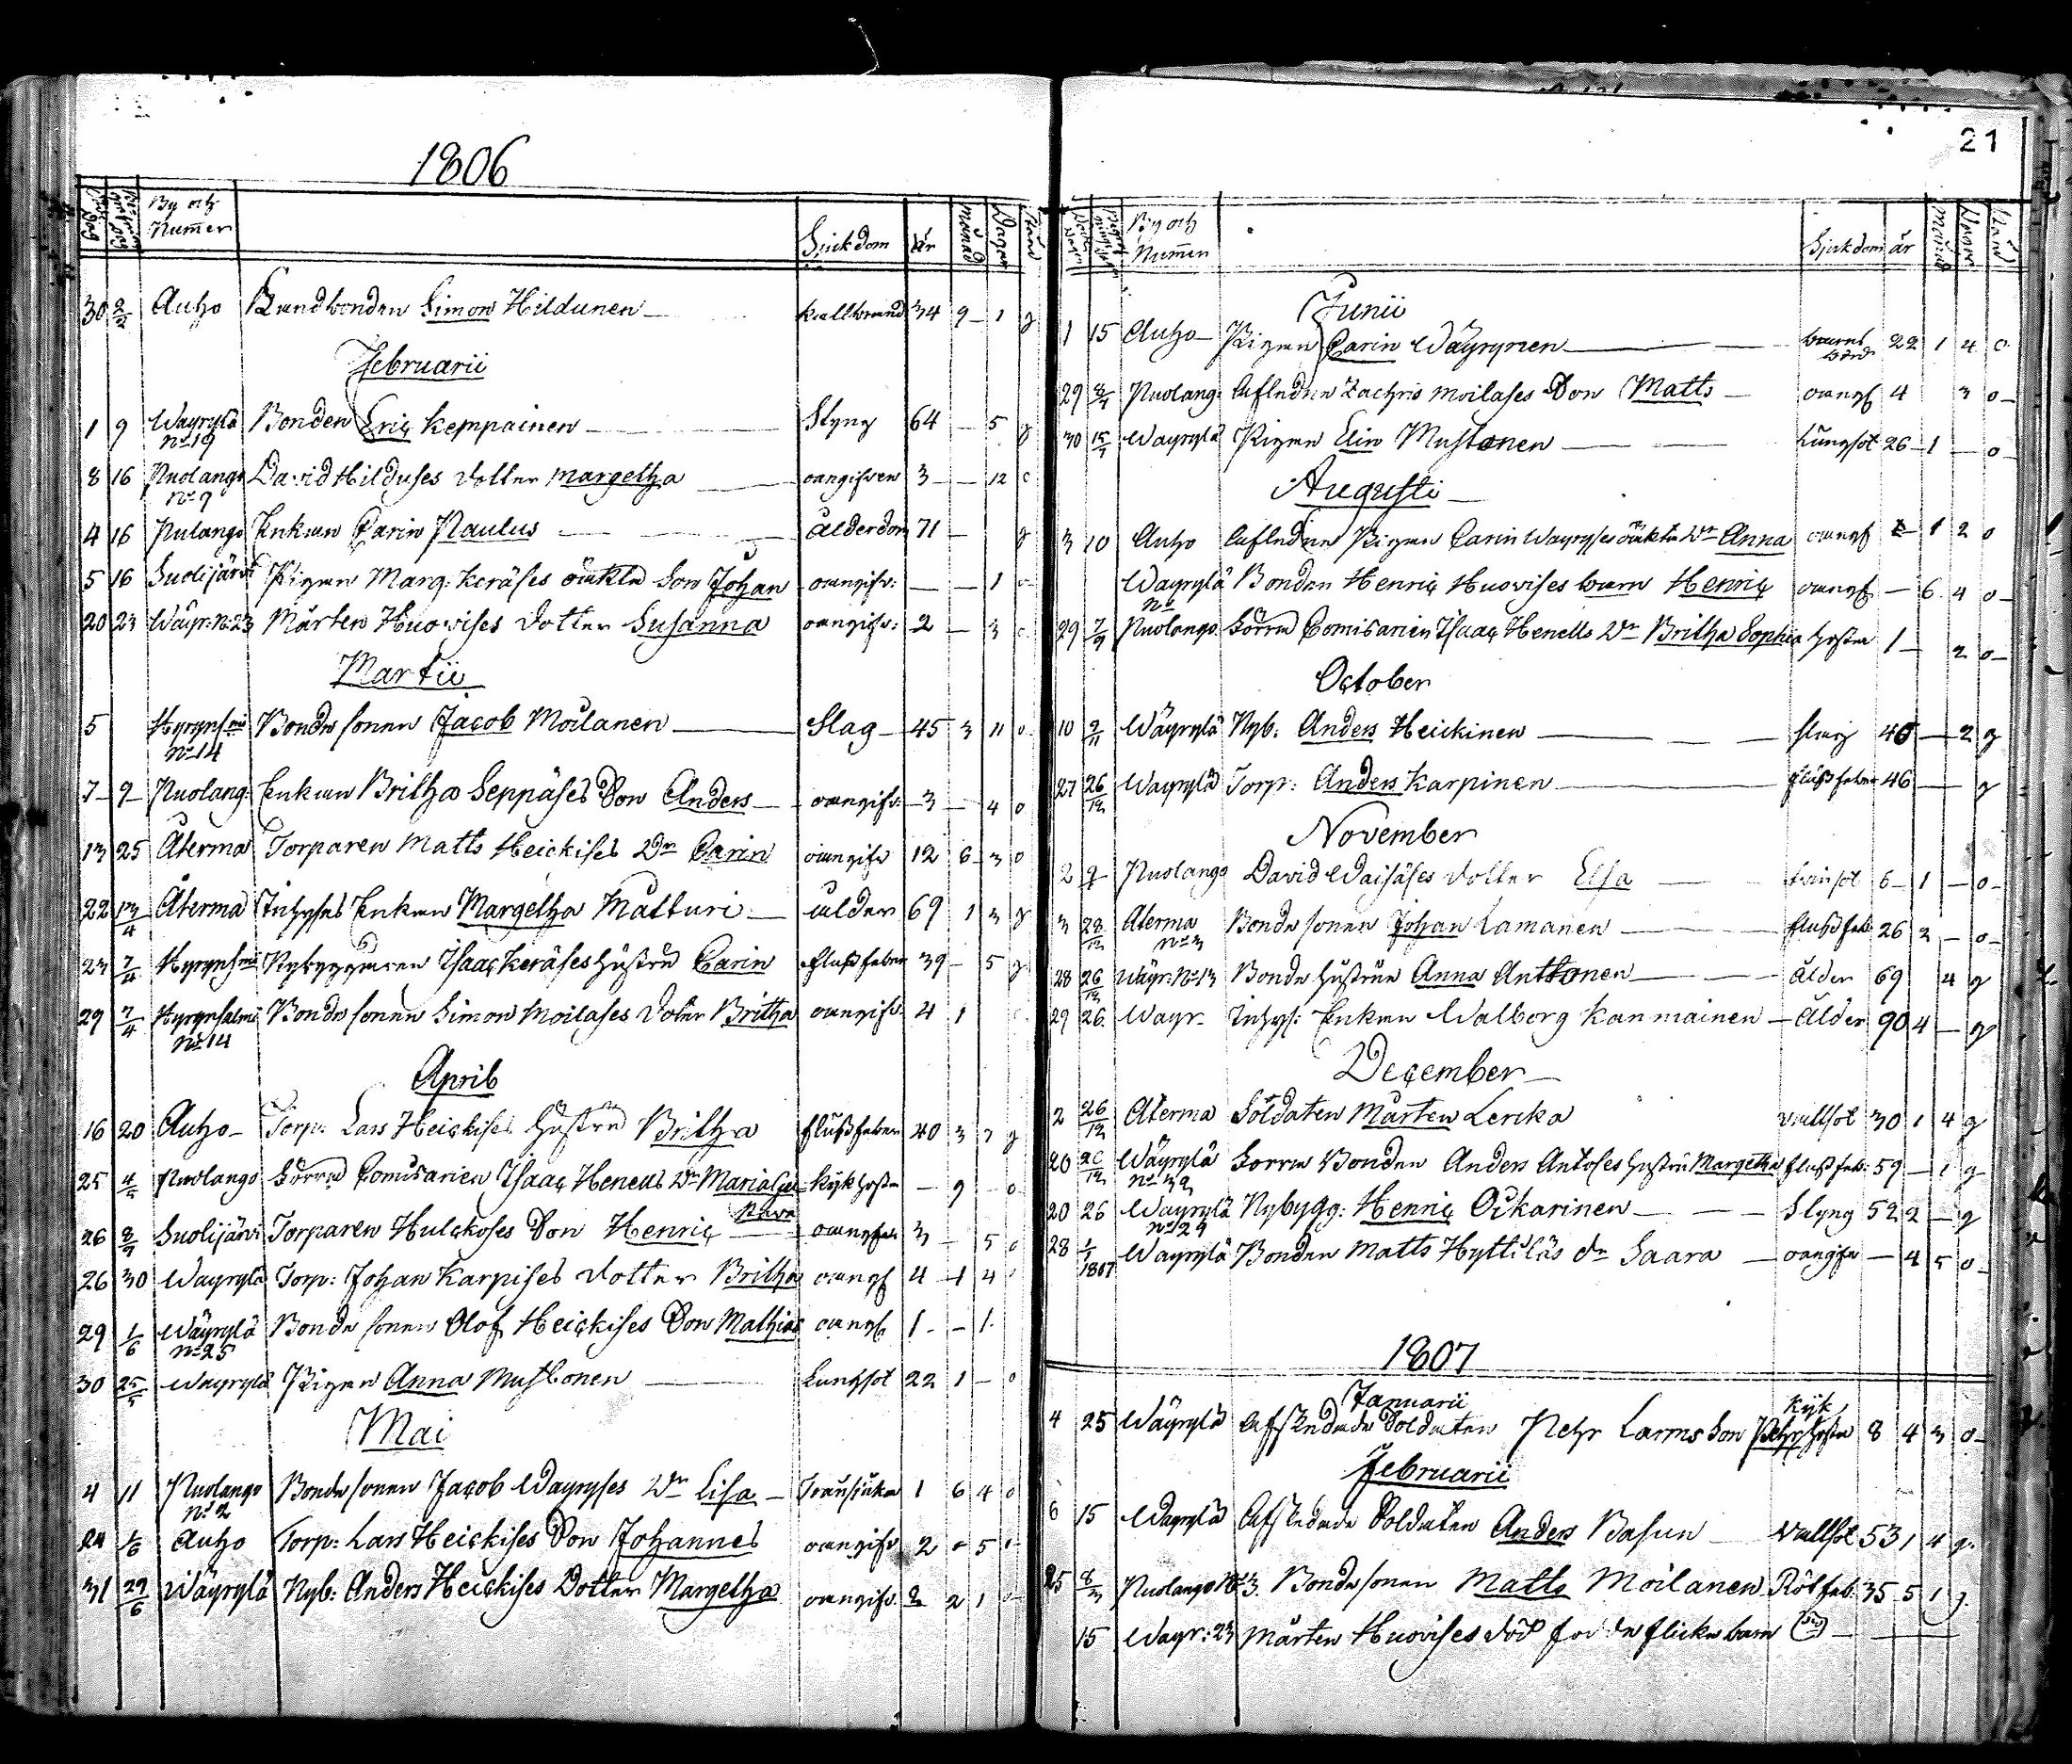 1806
By och Numer Siukdom år Månad Dagar Stånd
30 2/2 Autho Landbonden Simon Hildunen kallbrand 34 9 1 g
Februarii
1 9 Wäyrylä Bonden Eric Keppainen Styng 64 – 5 g
No 19
8 16 Puolango David Hilduses dotter Margetha oangifven 3 – 12 o
No 9
4 16 Pulango Enkan Carin Paulus Ålderdom 71 – g
5 16 Suolijärvi Pigan Marg: Keräses oäkta Son Johan oangifv: – – 1 o
20 23 Wäyr: No 23 Mårten Huovises dotter Susanna oangifv: 2 – 3 o
Martii
5 Hyrynsmi Bonde sonen Jacob Moilanen Slag 45 3 11 o
No 14
7 9 Puolang: Enkan Britha Seppäses Son Anders oangifv: 3 – 4 o
13 25 Återma Torparen Matts Heickises Dr Carin oangifv 12 6 3 o
22 13/4 Återma Inhyses Enkan Margetha Matturi ålder 69 1 3 g
23 7/4 Hyrynsmi Nybyggaren Isaac Keräses hustru Carin flussfeber 39 – 5 g
29 7/4 Hyrynsalmi Bonde sonen Simon Moilases doter Britha oangifv. 4 1
No 14
April
16 20 Autho Torp: Lars Heickises hustru Britha flussfeber 40 3 7 g
25 4/5 Puolango Herrn Comisarien Isaac Henells Dr Maria kikhosta – 9 – o
26 8/5 Suolijärvi Torparen Hulckoses Son Henric oangifven 3 – 5 o
26 30 Wäyrylä Torp: Johan Karpises dotter Britha oangf 4 1 4
29 1/6 Wäyrylä Bonde sonen Olof Heickises Son Mathias oangf. 1 – 1
No 25
30 25/5 Wäyrylä Pigan Anna Mustonen Lungsot 22 1 – o
Mai
4 11 Puolango Bonde sonen Jacob Wäyryses Dr Lisa Transiuka 1 6 4 o
No 2
24 1/6 Autho Torp: Lars Heickises Son Johannes oangifv 2 – 5
31 29/6 Wäyrylä Nyb: Anders Heickises Dotter Margetha oangifv. 2 2 1 o
21
By och Numen Sjukdom år Månad Dagar Stånd
Junii
1 15 Autho Pigan Carin Wäyrynen barns börd 22 1 4 o
29 8/7 Puolang: Afledne Zachris Moilases Son Matts oangf 4 3 o
30 15/7 Wäyrylä Pigan Elin Mustonen Lungsot 26 1 – o
Augusti
3 10 Autho Afledne Pigan Carin Wäyryses oäkta Dr Anna oangf – 1 2 o
Wäyrylä Bonden Henric Huovises barn Henric oangf – 6 4 o
No
29 7/9 Puolango Herrn Comisarien Isaac Henells Dr Britha Sophia hosta 1 – 2 o
October
10 2/11 Wäyrylä Nyb: Anders Heickinen styng 40 – 2 g
27 26/12 Wäyrylä Torp: Anders Karpinen flussfeber 46 – g
November
2 9 Puolango David Waisäses dotter Elsa 6 1 – o
3 28/12 Återma Bonde sonen Johan Lamanen flussfeb 26 3 – o
No 3
28 26/12 Wäyr: No 13 Bonde hustrun Anna Anttonen ålder 69 4 g
29 26 Wäyr. Inhys: Enkan Walborg Kanmainen Ålder 90 4 – g
December
2 26/12 Återma Soldaten Mårten Lercka Vallsot 30 1 4 g
20 26/12 Wäyrylä Herrn Bonden Anders Antoses hustru Margetha flussfeb: 59 – 1 g
20 26 Wäyrylä Nybygg: Henric Oikarinen Styng 52 2 – g
No 29
28 1/1 1807 Wäyrylä Bonden Matts Hyttiläs dr Saara oangfv – 4 5 o
1807
Januarii
4 25 Wäyrylä Afskedade Soldaten Pehr Larms Son Pehr kikhosta 8 4 3 o
Februarii
6 15 Wäyrylä Afskedade Soldaten Anders Basun Vallsot 53 1 4 g.
25 8/3 Puolango No 3. Bonde sonen Matts Moilanen Rötfeb: 35 5 1 g
15 Wäyr: 23 Mårten Huovises död födde flicke barn